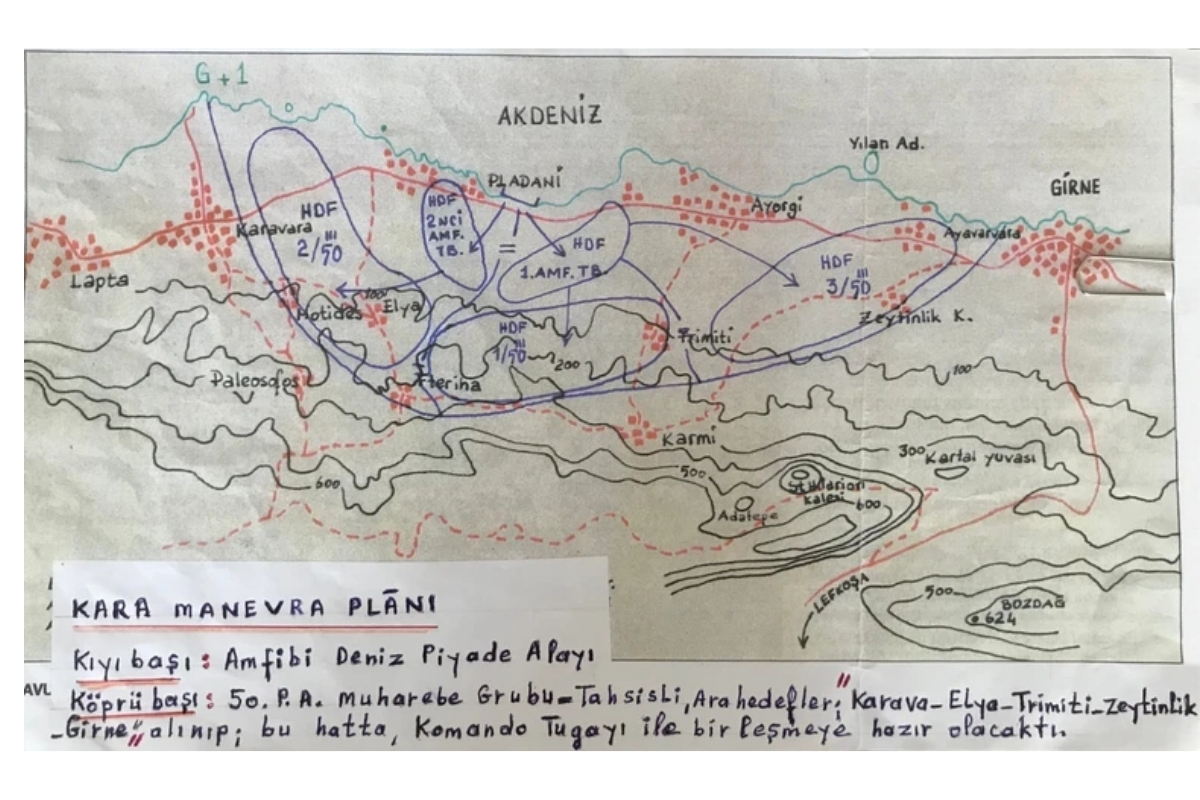 G+1
AKDENİZ
Yılan Ad.
GİRNE
PLADANİ
HDF
2NCİ
AMF.
TB.
HDF
2/50
III
Karavara
Ayorgi
Ayavarvara
HDF
1. AMF. TB.
HDF
3/50
III
Lapta
100
Motides
Elya
Zeytinlik K.
HDF
1/50
III
Trimiti
200
100
Paleosofos
Fterina
Karmi
300
Kartal yuvası
500
600
St Hilarion
Kalesi
600
Adatepe
LEFKOŞA
500
BOZDAĞ
624
KARA MANEVRA PLÂNI
Kıyı başı: Amfibi Deniz Piyade Alayı
AVL
Köprü başı: 50. P.A. Muharebe Grubu-Tahsisli, Ara hedefler; "Karava-Elya-Trimiti-Zeytinlik
-Girne" alınıp; bu hatta, Komando Tugayı ile birleşmeye hazır olacaktı.